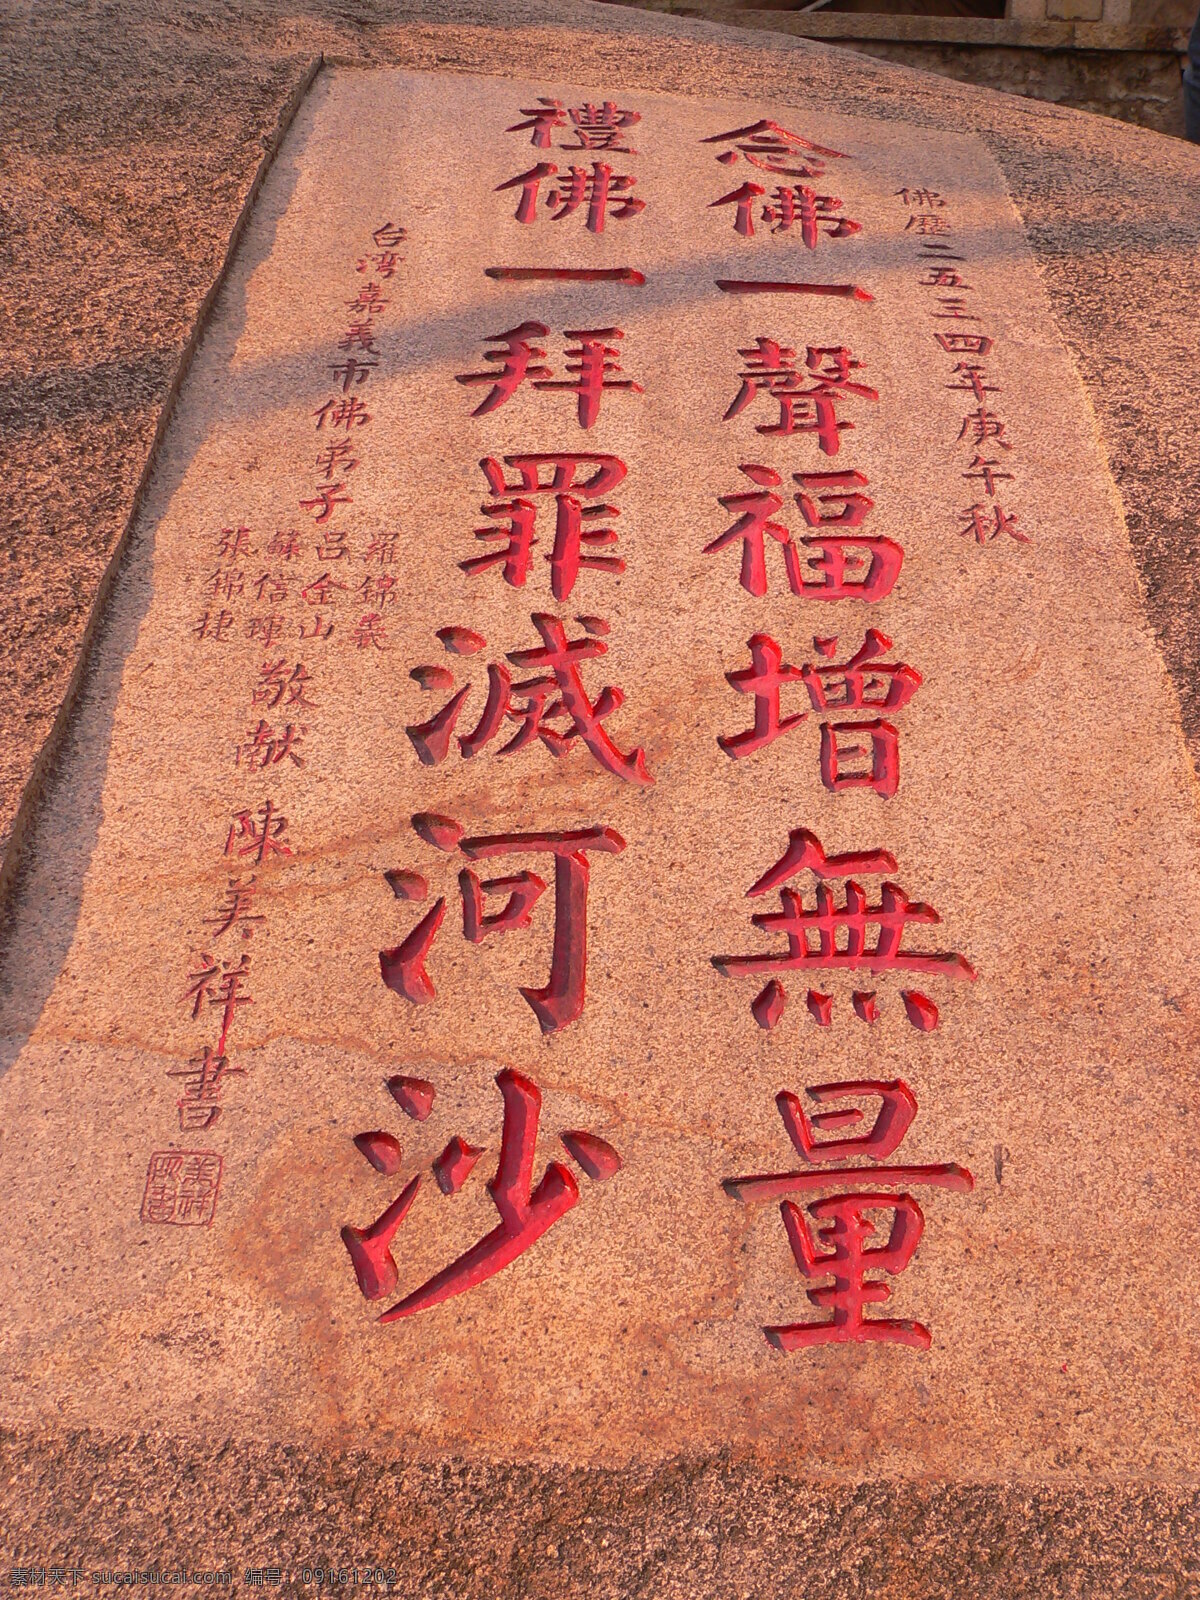 佛曆二五三四年庚午秋
念佛一聲福增無量
禮佛一拜罪滅河沙
台湾嘉義市佛弟子
羅錦義
呂金山
蘇信暉
張錦捷
敬献
陳美祥書
美祥
素材天下 sucaisucai.com 编号：09161202